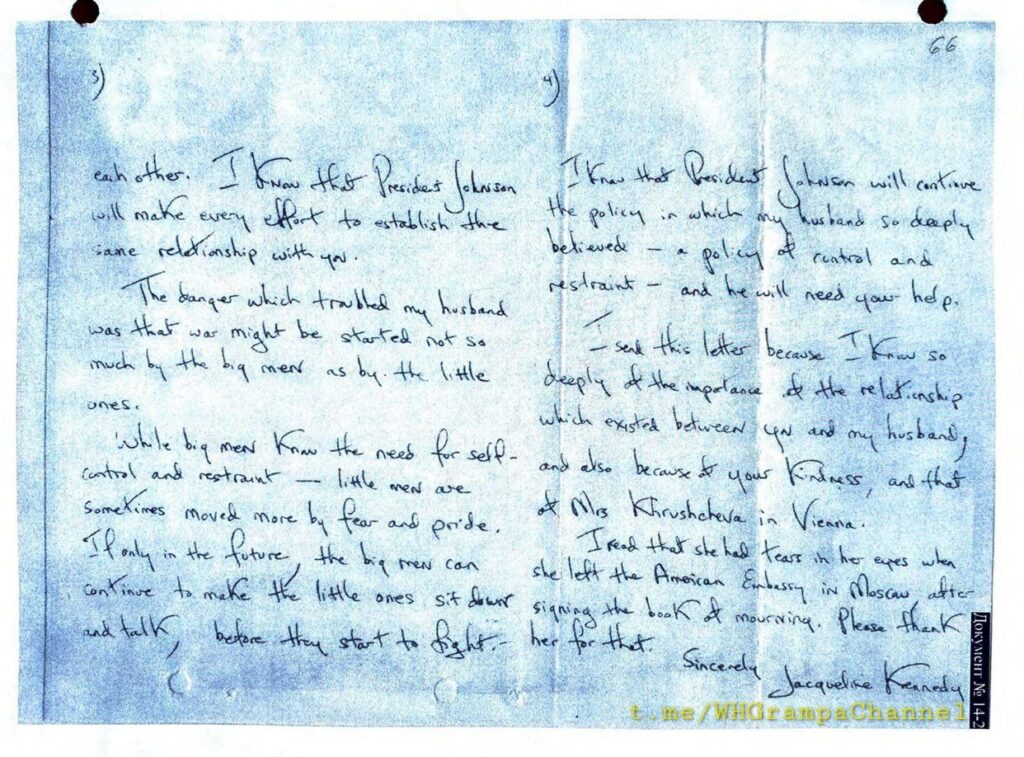 66
3)
each other. I know that President Johnson
will make every effort to establish the
same relationship with you.
The danger which troubled my husband
was that war might be started not so
much by the big men as by the little
ones.
While big men know the need for self-
control and restraint — little men are
sometimes moved more by fear and pride.
If only in the future, the big men can
continue to make the little ones sit down
and talk, before they start to fight. —
4)
I know that President Johnson will continue
the policy in which my husband so deeply
believed — a policy of control and
restraint — and he will need your help.
I send this letter because I know so
deeply of the importance of the relationship
which existed between you and my husband,
and also because of your kindness, and that
of Mrs Khrushcheva in Vienna.
I read that she had tears in her eyes when
she left the American Embassy in Moscow, after
signing the book of mourning. Please thank
her for that.
Sincerely
Jacqueline Kennedy
Документ № 14-2
t.me/WHGrampaChannel